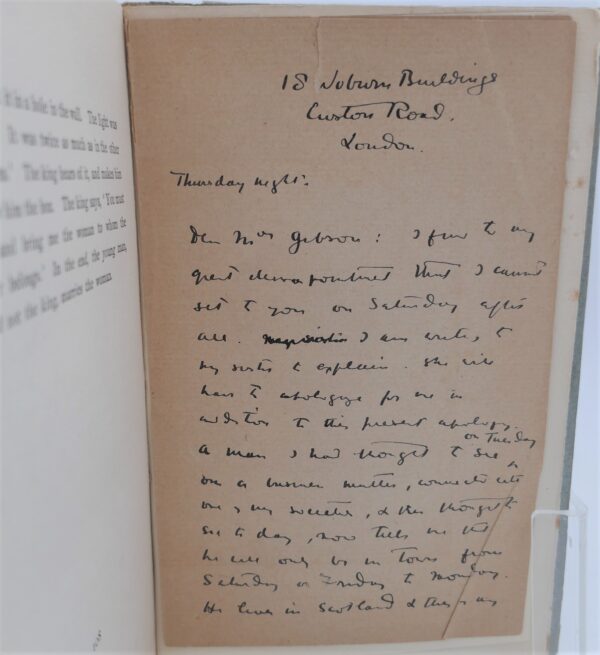 it in a hole in the wall. The fight was
It was twice as much as in the other
The king hears of it, and makes him
him the box. The king says, 'You must
bring me the woman to whom the
belongs.' In the end, the young man,
not the king, marries the woman
18 Woburn Buildings
Euston Road.
London.
Thursday night.
Dear Mrs Gibson: I fear to my
great disappointment that I cannot
get to you on Saturday after
all. I am writing to
my sister to explain. She will
have to apologize for me in
addition to this present apology.
on Tuesday
A man I had thought to see
on a business matter, connected with
one of my societies, & then thought to
see to day, now tells me that
he will only be in Town from
Saturday or Friday to Monday.
He lives in Scotland & there is any